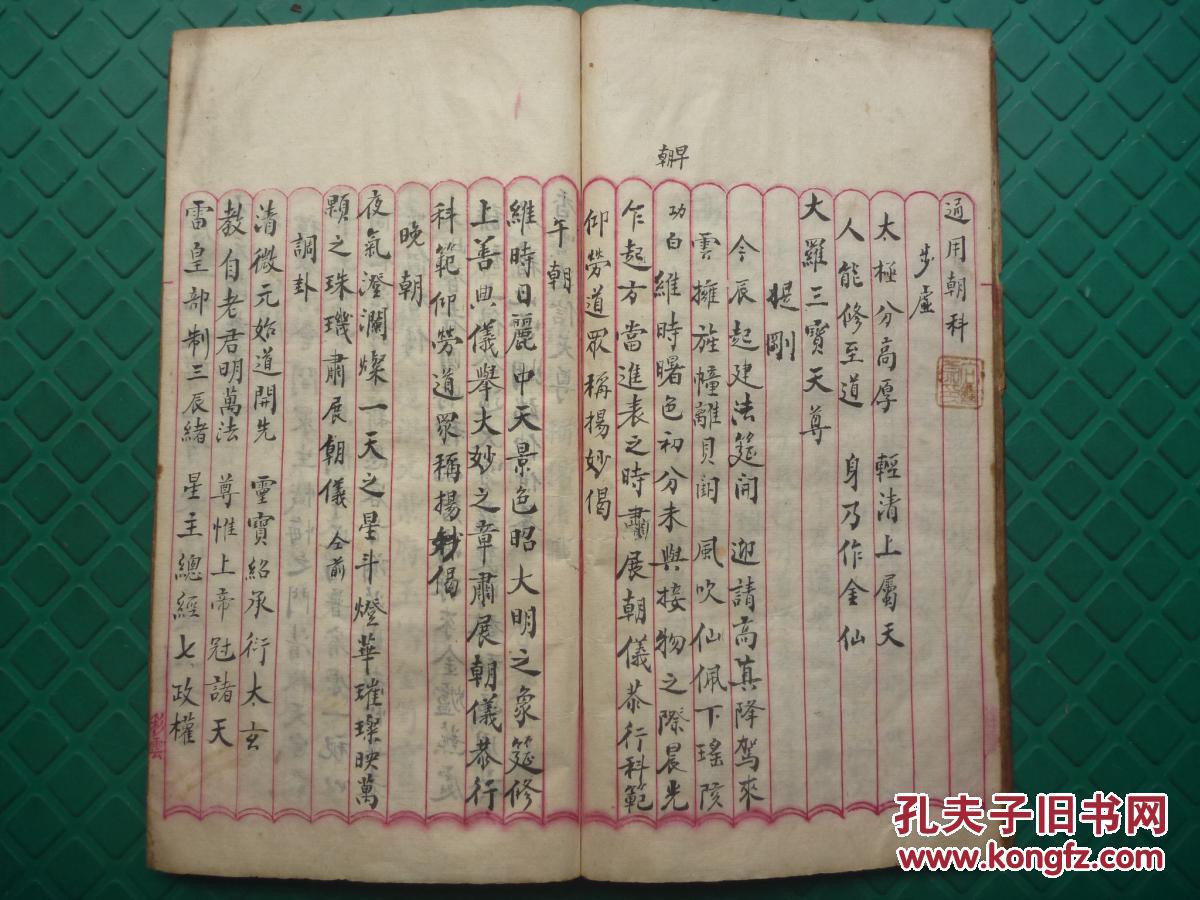 通用朝科
步虛
太極分高厚　輕清上屬天
人能修至道　身乃作金仙
大羅三寶天尊
提剛
今辰起建法筵開　迎請高真降駕來
雲擁旌幢離貝闕　風吹仙佩下瑤陔
早朝
功白維時曙色初分未與接物之際晨光
乍起方當進表之時肅展朝儀恭行科範
仰勞道眾稱揚妙偈
午朝
維時日麗中天景色昭大明之象筵修
上善典儀舉大妙之章肅展朝儀恭行
科範仰勞道眾稱揚妙偈
晚朝
夜氣澄瀾燦一天之星斗燈華璀璨映萬
顆之珠璣肅展朝儀 仝前
調卦
清微元始道開先　靈寶紹承衍太玄
教自老君明萬法　尊惟上帝冠諸天
雷皇部制三辰緒　星主總經七政權
彩雲
孔夫子旧书网
www.kongfz.com